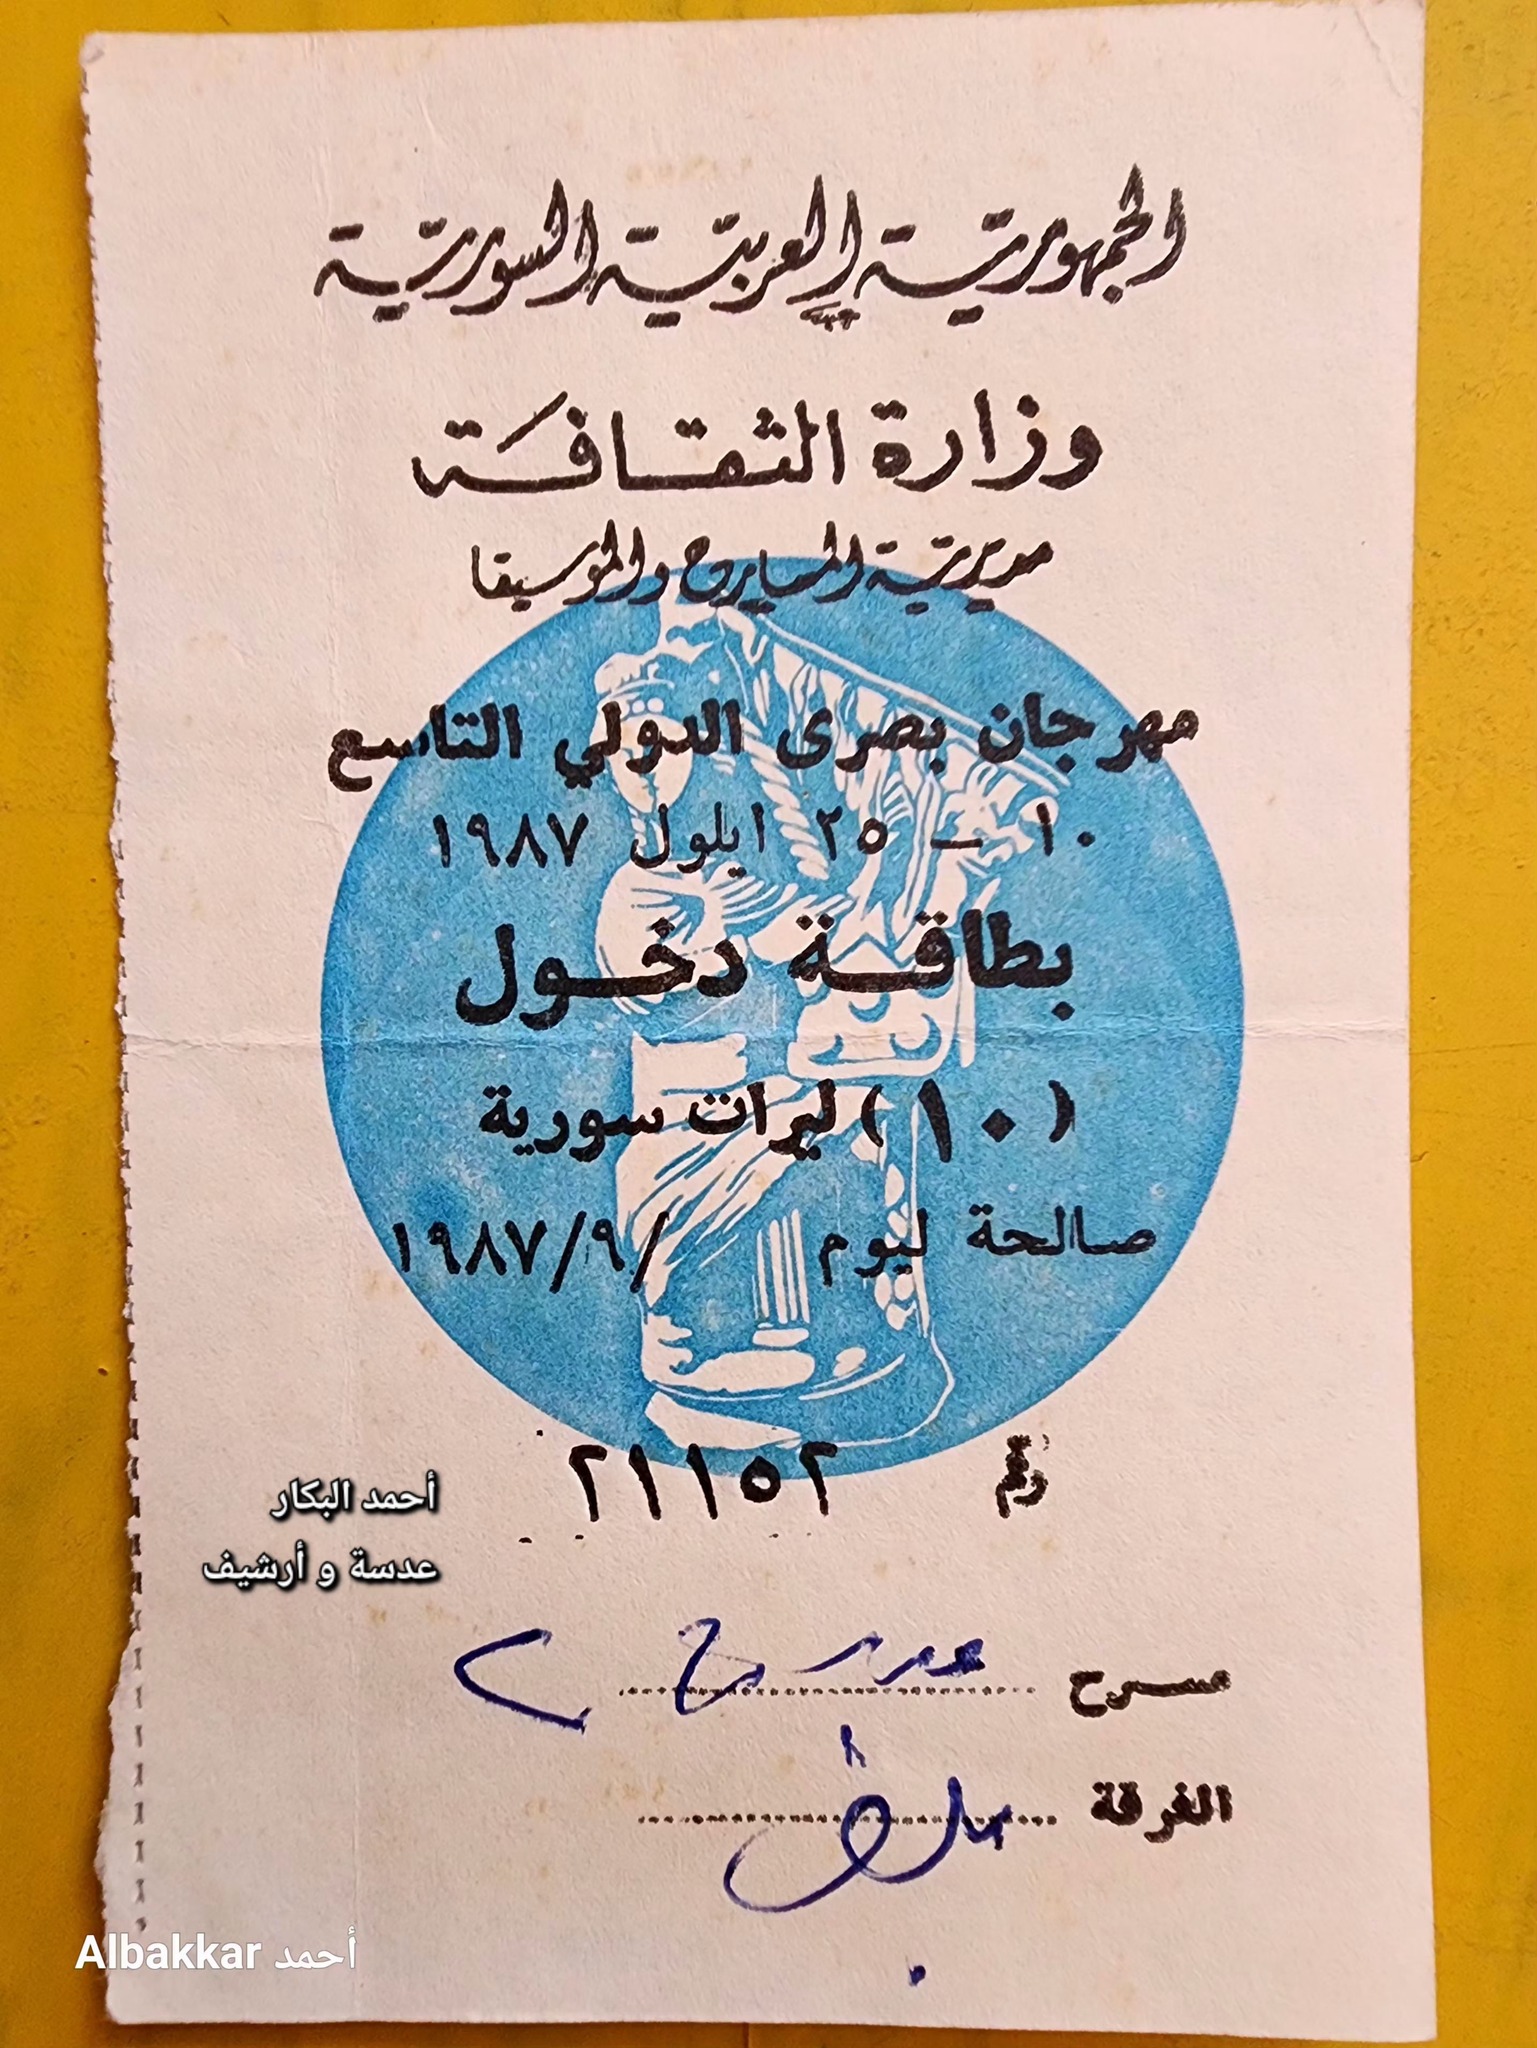 الجمهورية العربية السورية
وزارة الثقافة
مديرية المسارح والموسيقا
مهرجان بصرى الدولي التاسع
١٠ – ٢٥ ايلول ١٩٨٧
بطاقة دخول
(١٠) ليرات سورية
صالحة ليوم / ٩/ ١٩٨٧
رقم ٢١١٥٢
أحمد البكار
عدسة و أرشيف
مسرح
الفرقة
Albakkar أحمد